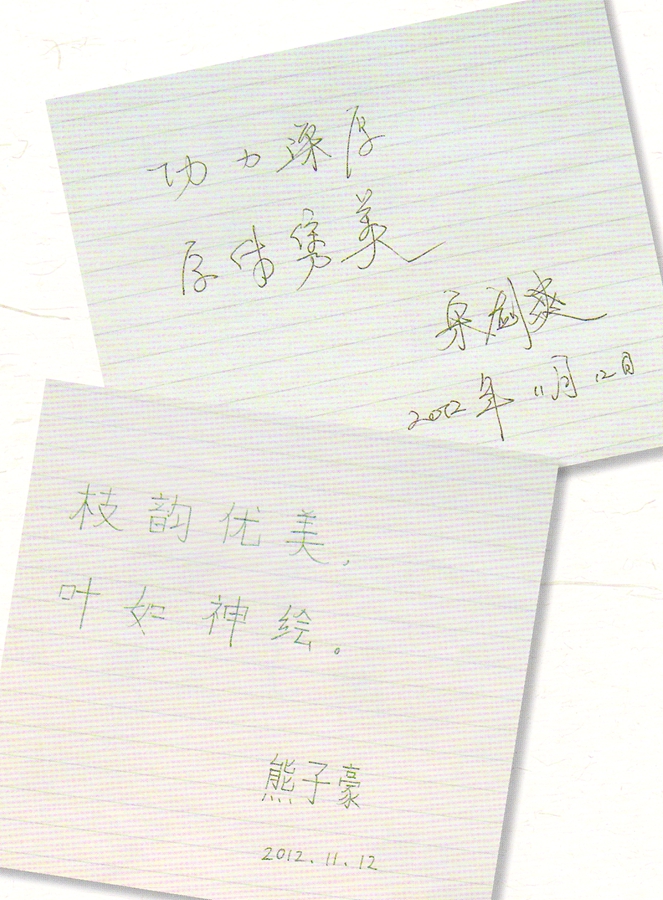 功力深厚
厚伟隽美
2012年11月12日
枝韵优美，
叶如神绘。
熊子豪
2012.11.12